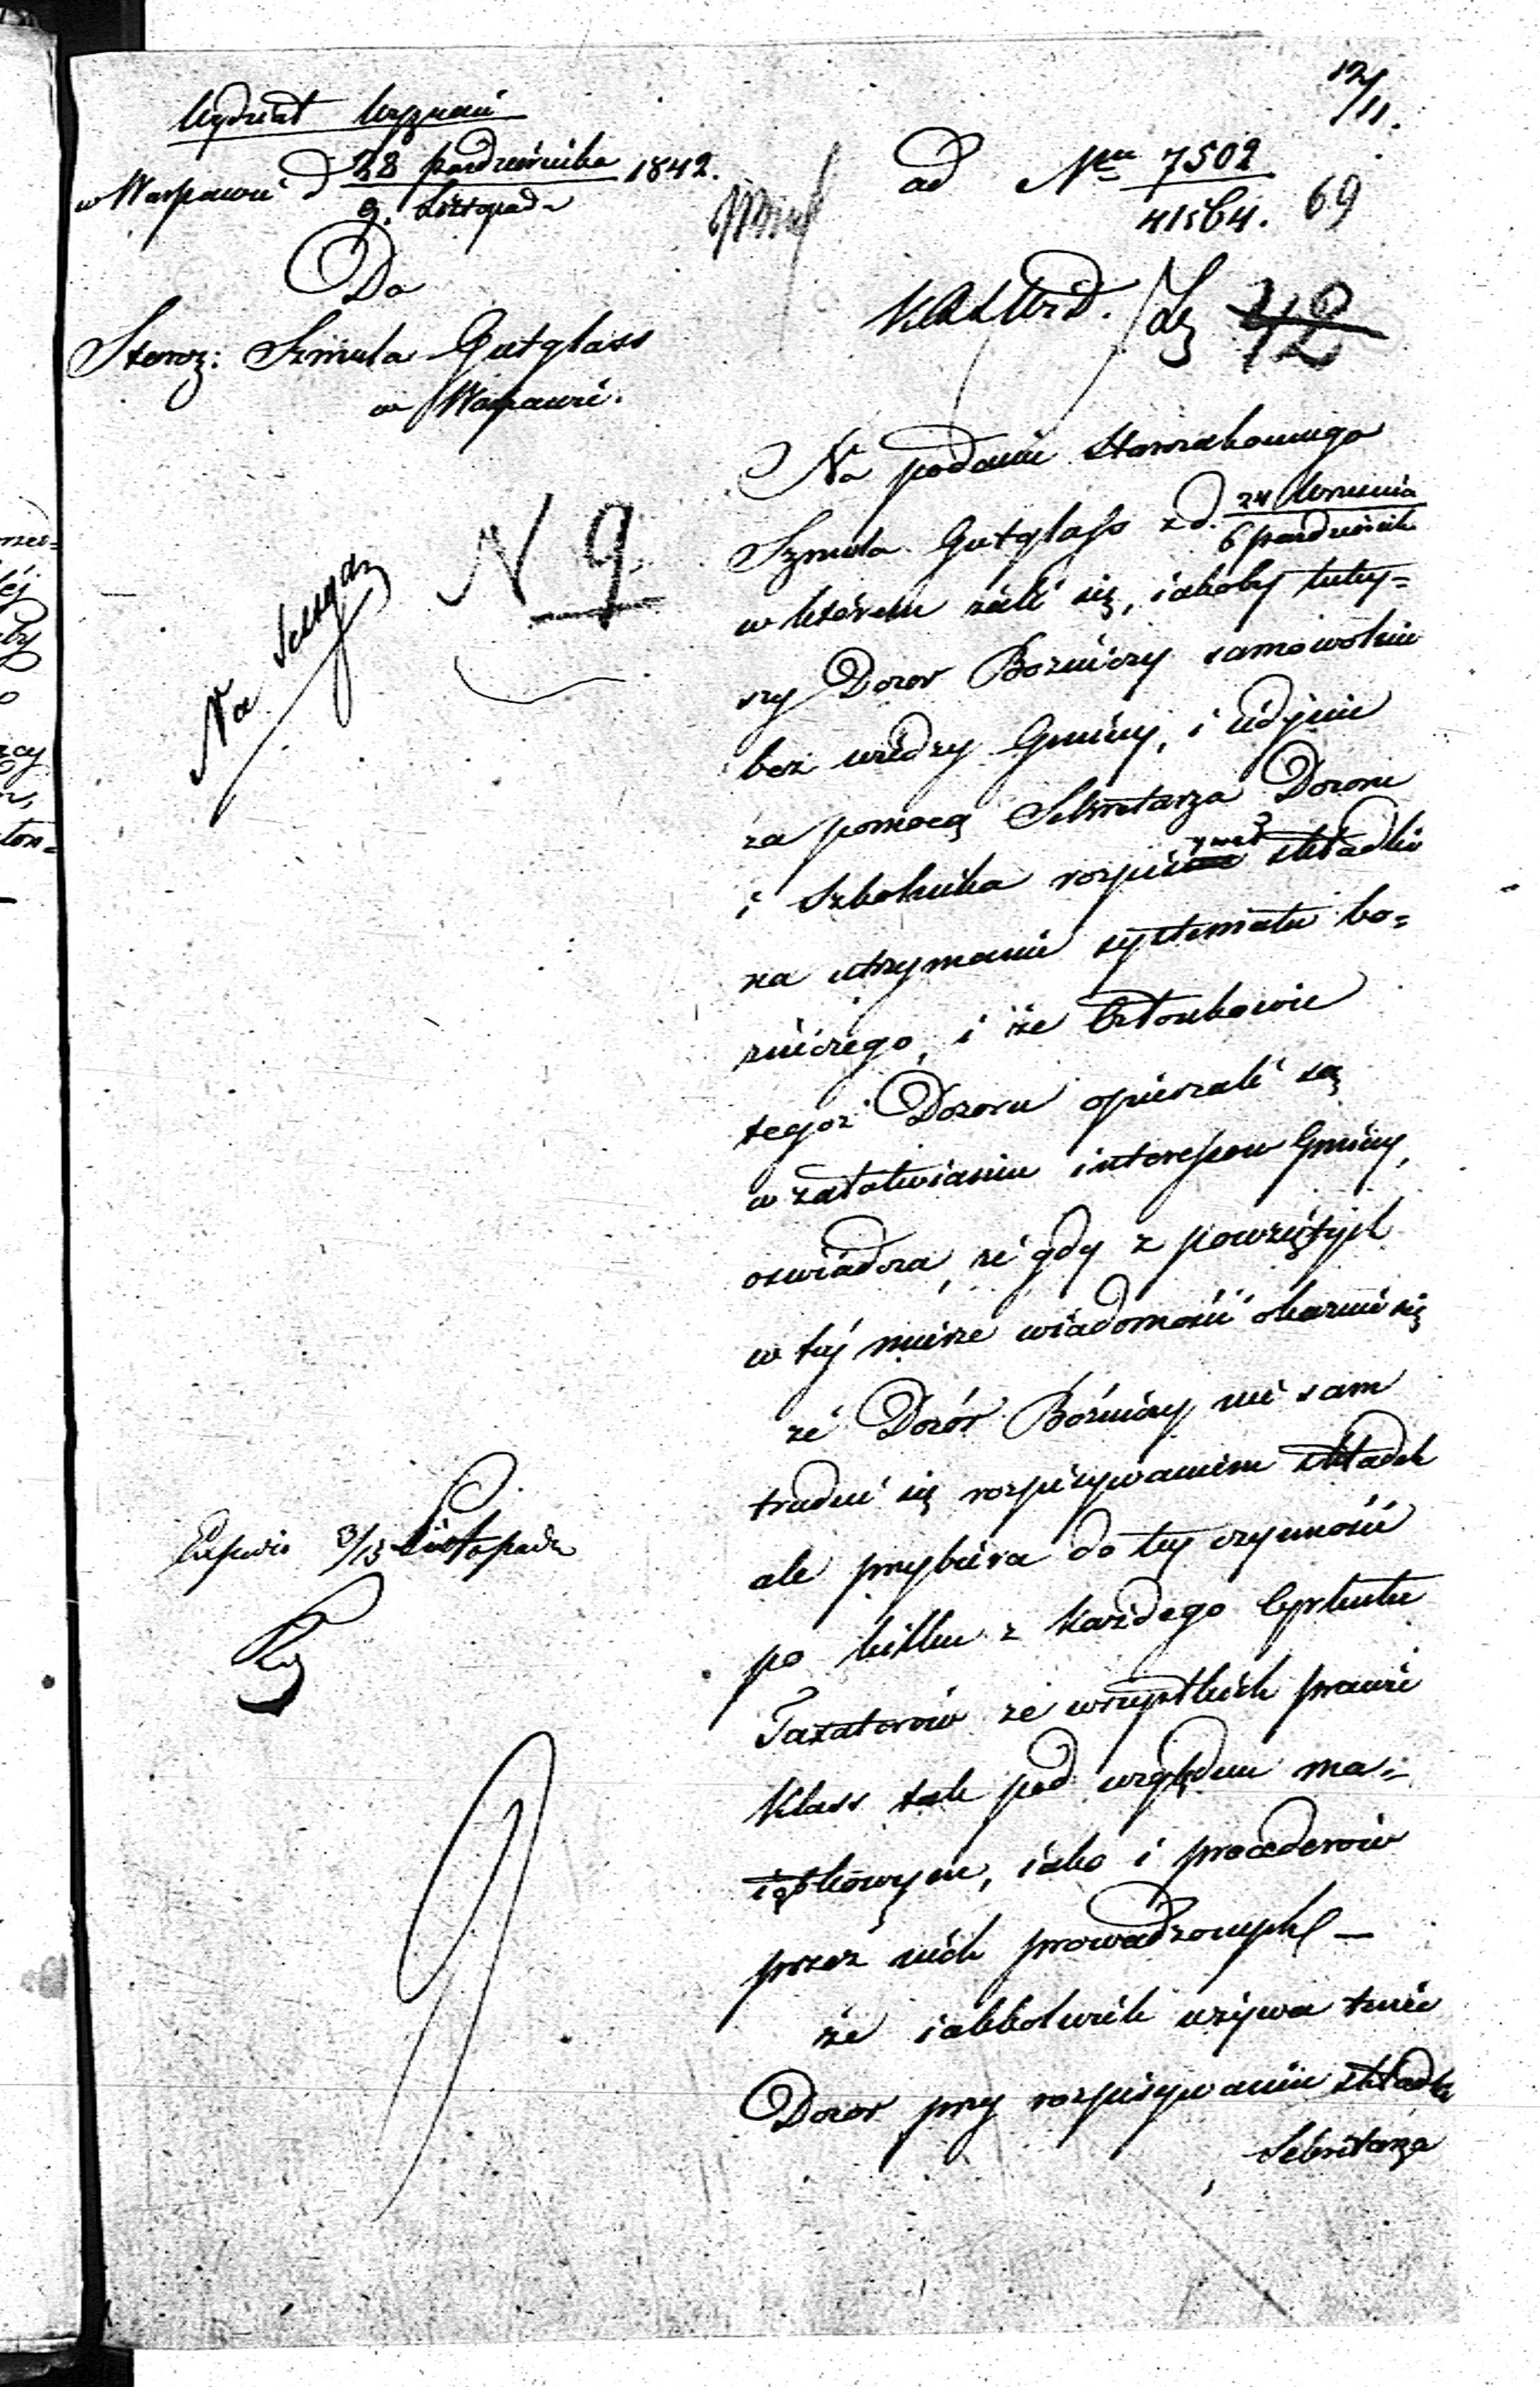 12/11.
Wydział Wyznań
w Warszawie d 28 października 1842.
9. Listopada
ad Nru 7502
41564. 69
Do
Staroz: Szmula Gutglass
w Warszawie.
42
N 9.
Na
Na podanie Starozakonnego
Szmula Gutglass z d. 24 Września
6 październik
w którem żali się, iakoby tutey=
szy Dozor Bożniczy samowolnie
bez wiedzy Gminy, i iedynie
za pomocą Sekretarza Dozoru
i Szkolnika rozpisywał składkę
na utrzymanie systematu bo=
żniczego, i że Członkowie
tegoż Dozoru opieszali są
w załatwianiu interessow Gminy,
oswiadcza, że gdy z powziętych
w tej mierze wiadomości okazuie się
że Dozór Bóżniczy nie sam
trudni się rozpisywaniem składek
ale przybiera do tey czynności
po kilku z każdego Cyrkułu
Taxatorów ze wszystkich prawie
Klass tak pod względem ma=
iątkowym, iako i procederów
przez nich prowadzonych —
że iakkolwiek używa tenże
Dozor przy rozpisywaniu składek
Sekretarza
3/15 Listopada